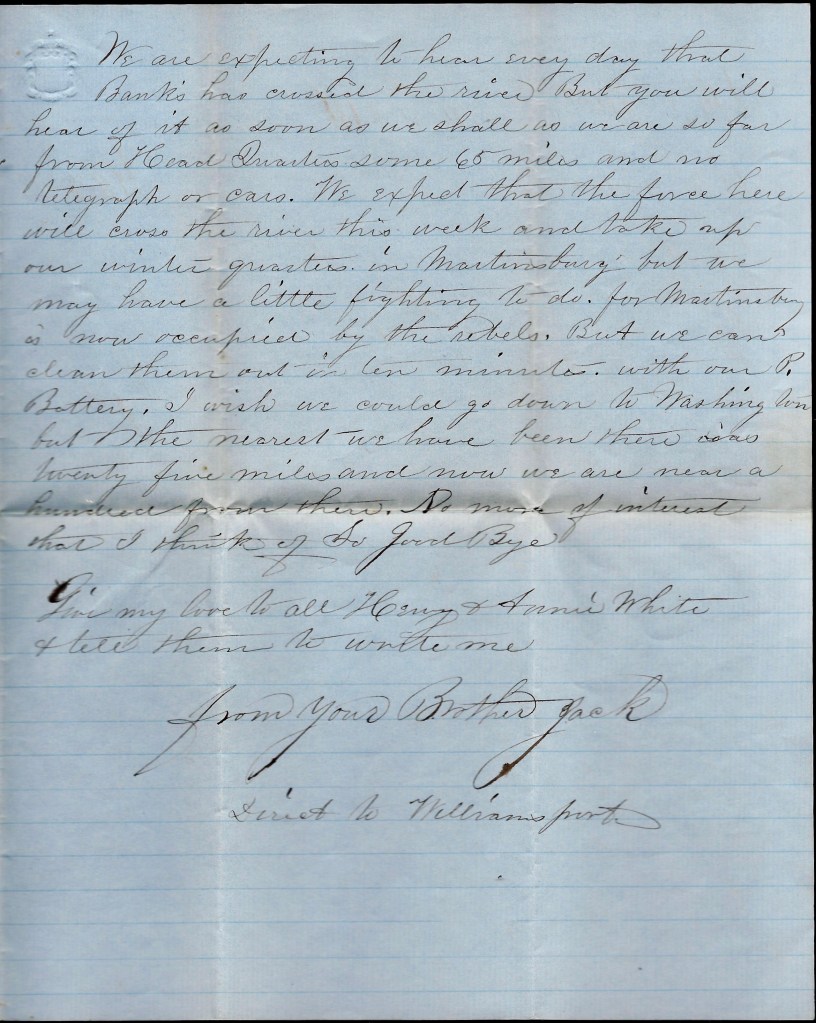 We are expecting to hear evey day that
Banks has crossed the river But you will
hear of it as soon as we shall as we are so far
from Head Quarters some 65 miles and no
telegraph or cars. We expect that the force here
will cross the river this week and take up
our winter quarters in Martinsburg but we
may have a little fighting to do. for Martinsburg
is now occupied by the rebels. But we can
clean them out in ten minutes. with our P.
Battery. I wish we could go down to Washington
but the nearest we have been there was
twenty five miles and now we are near a
hundred from there. No more of interest
that I think of So Good Bye
Give my love to all Henry & White
& tell them to write me
from your Brother Jack
Direct to Williamsport